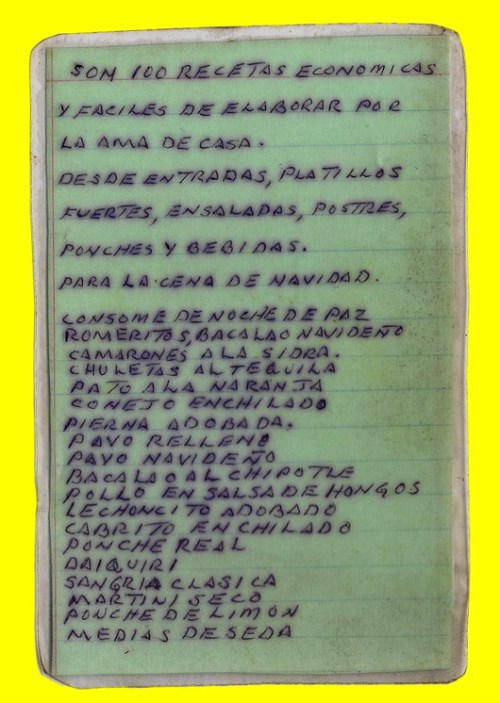 SON 100 RECETAS ECONOMICAS
Y FACILES DE ELABORAR POR
LA AMA DE CASA.
DESDE ENTRADAS, PLATILLOS
FUERTES, ENSALADAS, POSTRES,
PONCHES Y BEBIDAS.
PARA LA CENA DE NAVIDAD.
CONSOME DE NOCHE DE PAZ
ROMERITOS, BACALAO NAVIDEÑO
CAMARONES A LA SIDRA.
CHULETAS AL TEQUILA
PATO A LA NARANJA
CONEJO ENCHILADO
PIERNA ADOBADA.
PAVO RELLENO
PAVO NAVIDEÑO
BACALAO AL CHIPOTLE
POLLO EN SALSA DE HONGOS
LECHONCITO ADOBADO
CABRITO ENCHILADO
PONCHE REAL
DAIQUIRI
SANGRIA CLASICA
MARTINI SECO
PONCHE DE LIMON
MEDIAS DE SEDA